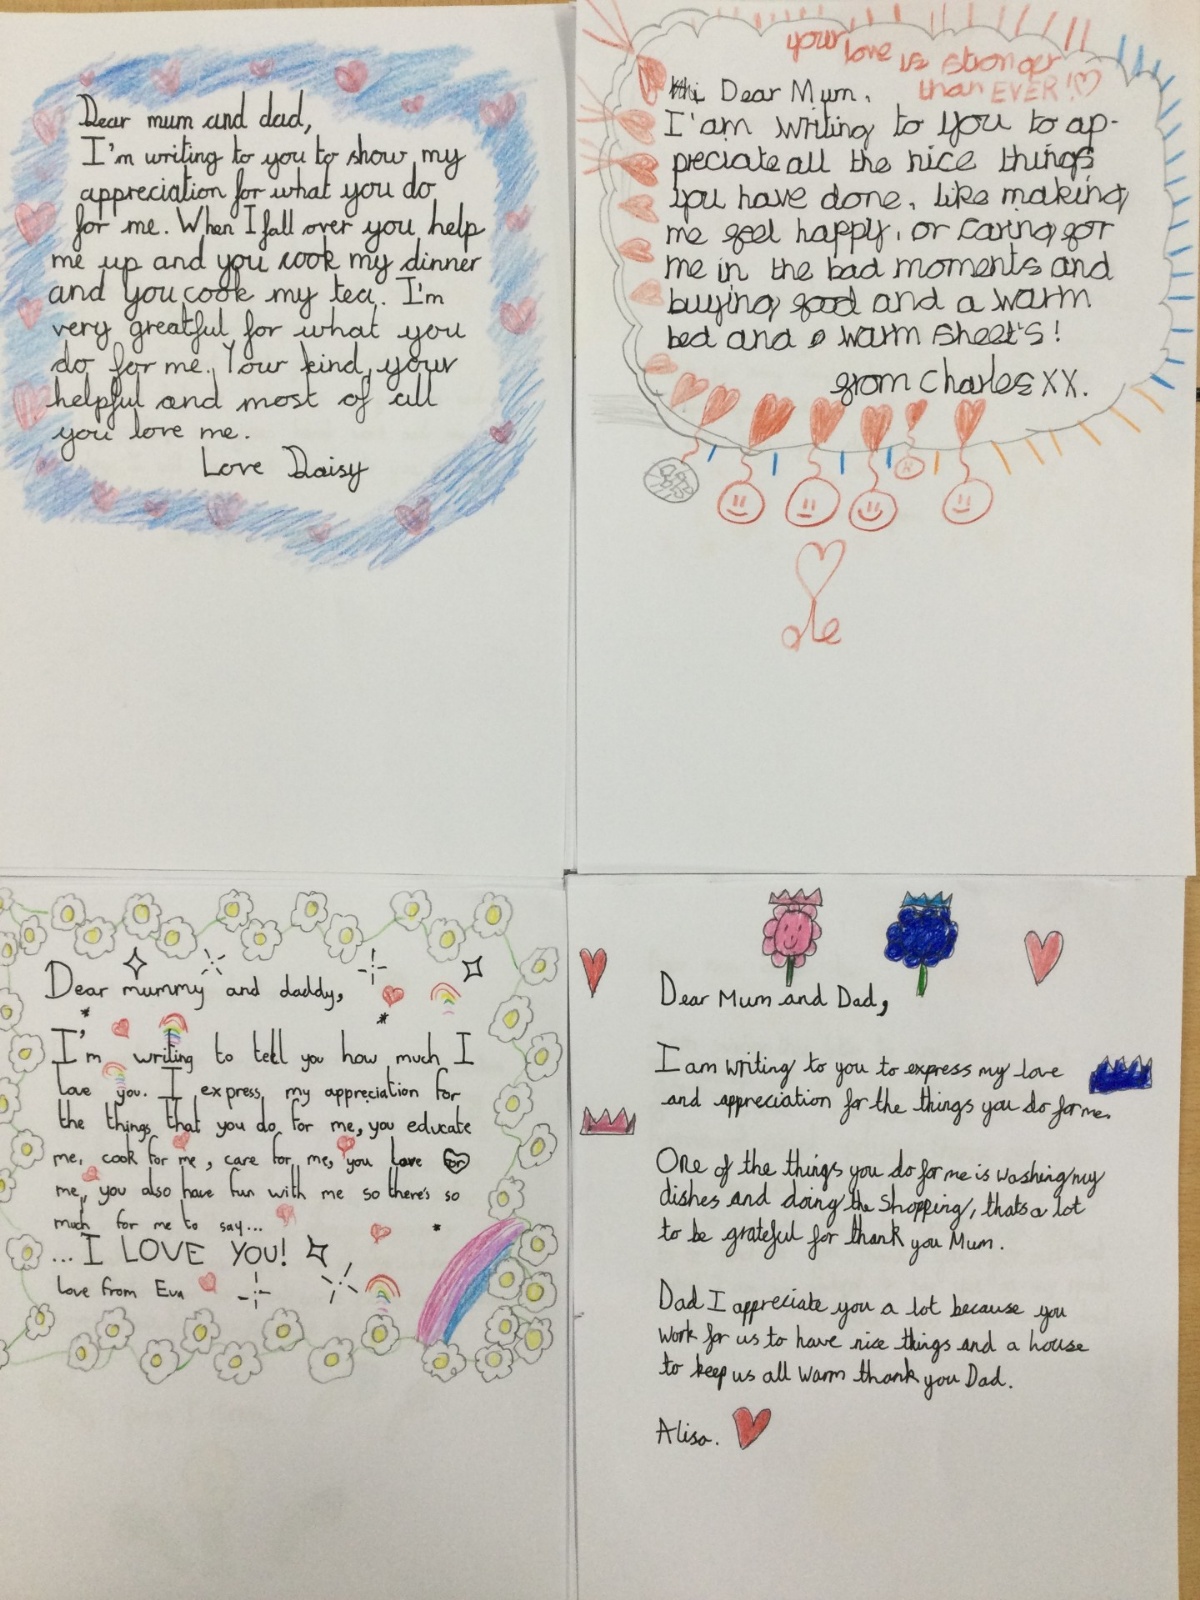 Dear mum and dad,
I'm writing to you to show my
appreciation for what you do
for me. When I fall over you help
me up and you cook my dinner
and you cook my tea. I'm
very greatful for what you
do for me. Your kind, your
helpful and most of all
you love me.
Love Daisy
your love is stronger
than EVER!
Dear Mum,
I'am writing to you to ap-
preciate all the nice things
you have done, like making
me feel happy, or caring for
me in the bad moments and
buying food and a warm
bed and warm sheet's!
from Charles XX.
Dear mummy and daddy,
I'm writing to tell you how much I
love you. I express my appreciation for
the things that you do for me, you educate
me, cook for me, care for me, you love for
me, you also have fun with me so there's so
much for me to say...
...I LOVE YOU!
Love from Eva
Dear Mum and Dad,
I am writing to you to express my love
and appreciation for the things you do for me.
One of the things you do for me is washing my
dishes and doing the shopping, thats a lot
to be grateful for thank you Mum.
Dad I appreciate you a lot because you
work for us to have nice things and a house
to keep us all warm thank you Dad.
Alisa.